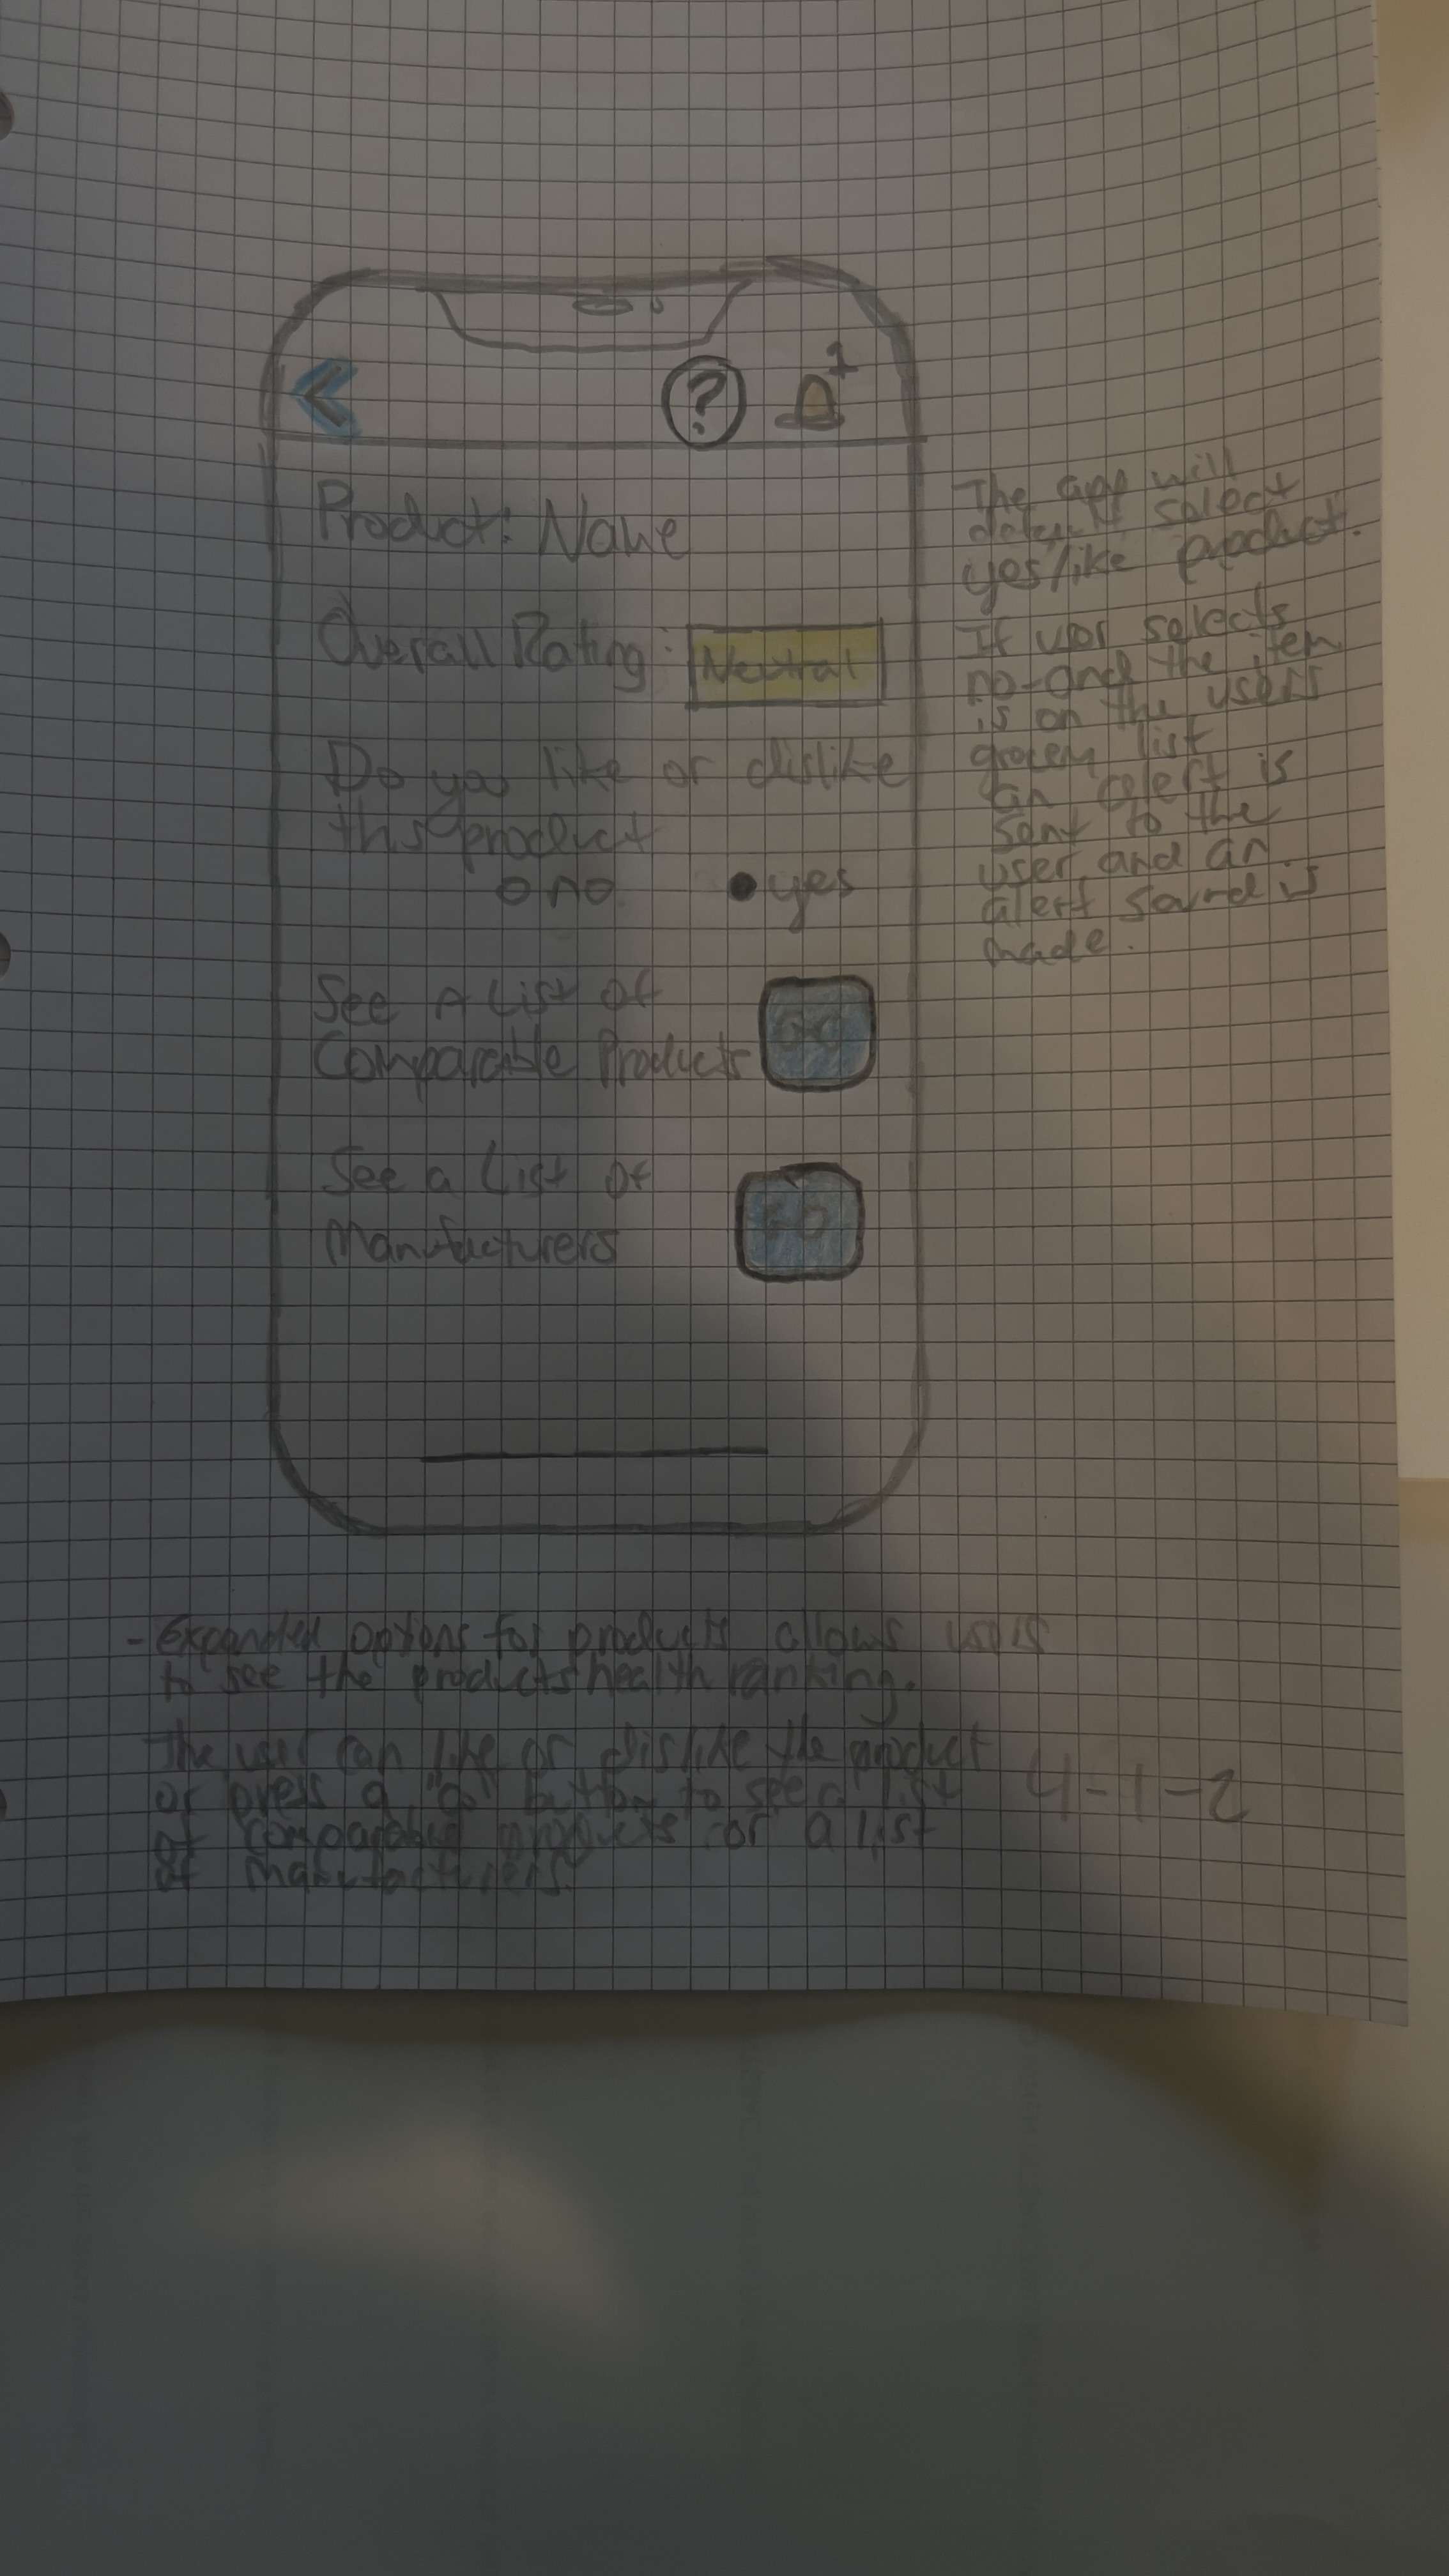 ?
1
Product: Name
Overall Rating: Neutral
Do you like or dislike
this product
no yes
See A List of
Comparable Products GO
See a List of
Manufacturers GO
The app will
default select
yes/like product.
If user selects
no-and the item
is on the users
grocery list
an alert is
sent to the
user and an
alert sound is
made.
- Expanded options for products allows users
to see the products health ranking.
The user can like or dislike the product
or press a "Go" button to see a list
of comparable products or a list
of manufacturers.
4-1-2